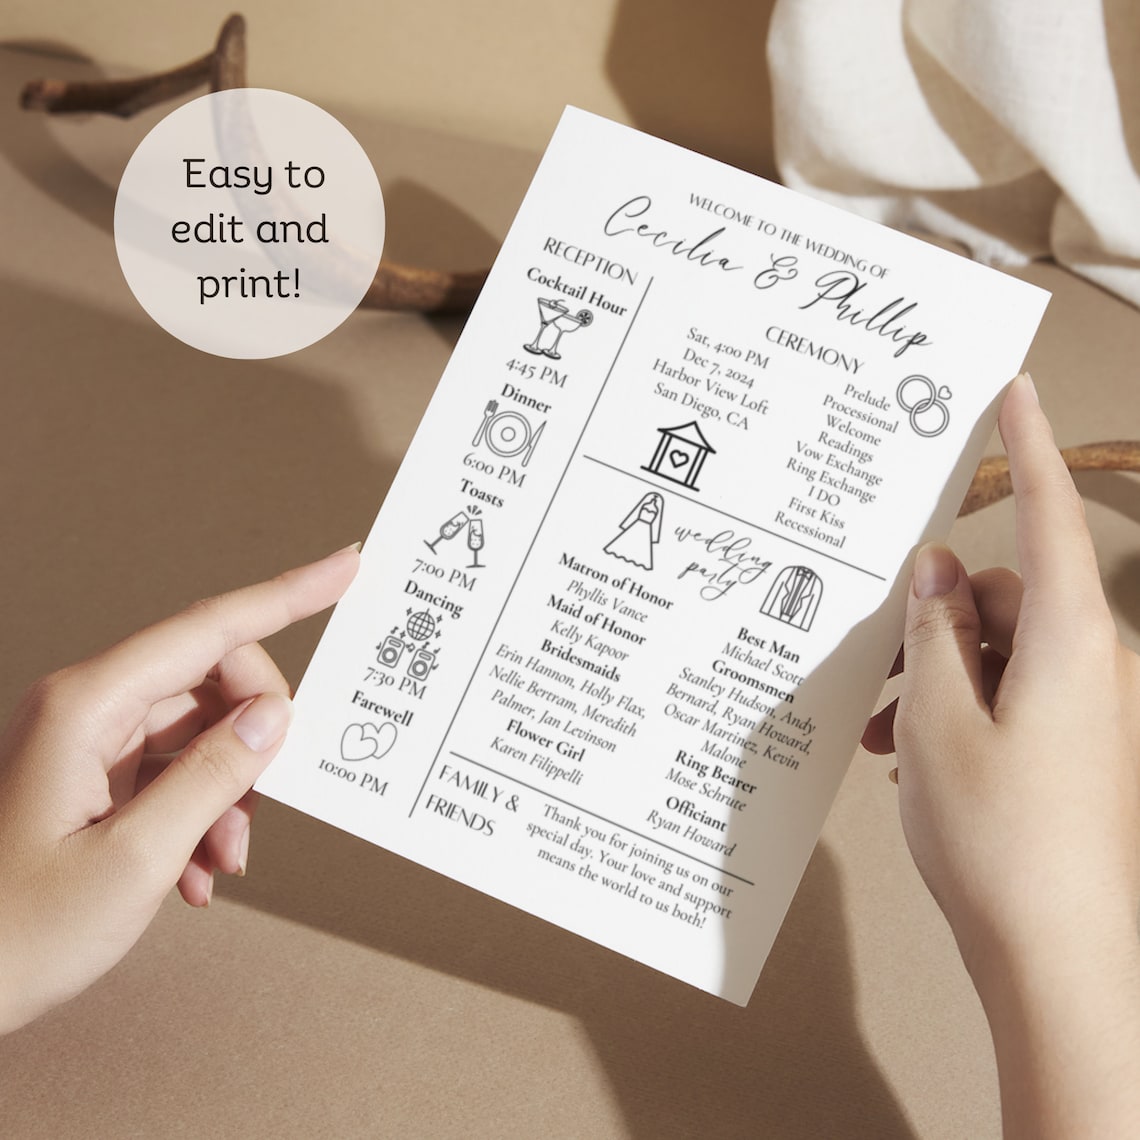 Easy to
edit and
print!
WELCOME TO THE WEDDING OF
Cecilia & Phillip
RECEPTION
Cocktail Hour
4:45 PM
Dinner
6:00 PM
Toasts
7:00 PM
Dancing
7:30 PM
Farewell
10:00 PM
CEREMONY
Sat, 4:00 PM
Dec 7, 2024
Harbor View Loft
San Diego, CA
Prelude
Processional
Welcome
Readings
Vow Exchange
Ring Exchange
I DO
First Kiss
Recessional
wedding
party
Matron of Honor
Phyllis Vance
Maid of Honor
Kelly Kapoor
Bridesmaids
Erin Hannon, Holly Flax,
Nellie Bertram, Meredith
Palmer, Jan Levinson
Flower Girl
Karen Filippelli
Best Man
Michael Scott
Groomsmen
Stanley Hudson, Andy
Bernard, Ryan Howard,
Oscar Martinez, Kevin
Malone
Ring Bearer
Mose Schrute
Officiant
Ryan Howard
FAMILY &
FRIENDS
Thank you for joining us on our
special day. Your love and support
means the world to us both!